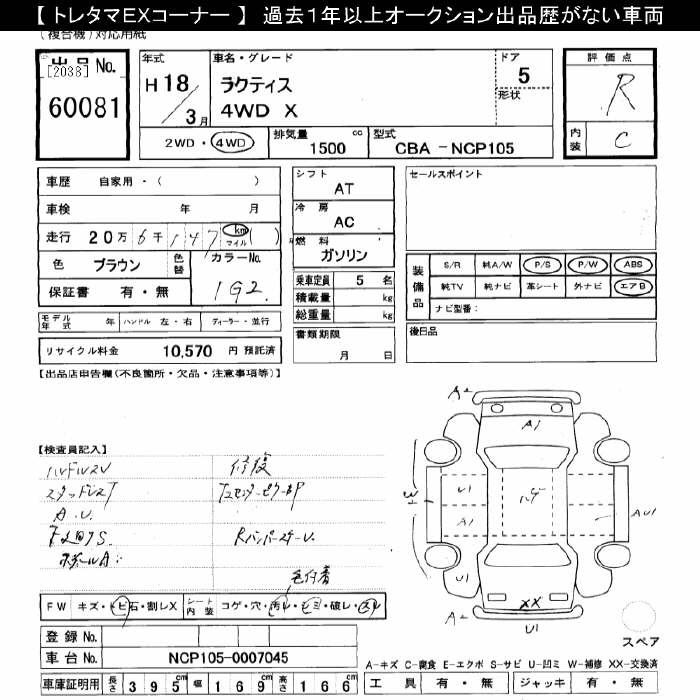 【 トレタマＥＸコーナー 】 過去１年以上オークション出品歴がない車両
(複合機)対応用紙
出品No.
[2038]
60081
年式
H 18 / 3月
車名・グレード
ラクティス
4WD X
ドア
5
形状
評価点
R
内装
C
2WD・4WD
排気量 1500 cc
型式 CBA -NCP105
車歴 自家用・( )
車検 年 月
走行 20万6千147 km マイル ( )
色 ブラウン
色替
カラーNo.
1G2.
保証書 有・無
モデル年式 年 ハンドル 左・右 ディーラー・並行
リサイクル料金 10,570 円 預託済
シフト
AT
冷房
AC
燃料
ガソリン
乗車定員 5 名
積載量 kg
総重量 kg
書類期限
月 日
セールスポイント
装備品
S/R 純A/W P/S P/W ABS
純TV 純ナビ 革シート 外ナビ エアB
ナビ型番:
後日品
【出品店申告欄(不良箇所・欠品・注意事項等)】
【検査員記入】
修復
A.U.
色付着
A2
A1
U1
A1
U1
AU1
XX
A2
U1
スペア
FW キズ・トビ石・割レX
シート内装 コゲ・穴・汚レ・シミ・破レ・スレ
登録No.
車台No. NCP105-0007045
車庫証明用 長さ 395cm 幅 169cm 高さ 166
A-キズ C-腐食 E-エクボ S-サビ U-凹ミ W-補修 XX-交換済
工具 有・無 ジャッキ 有・無